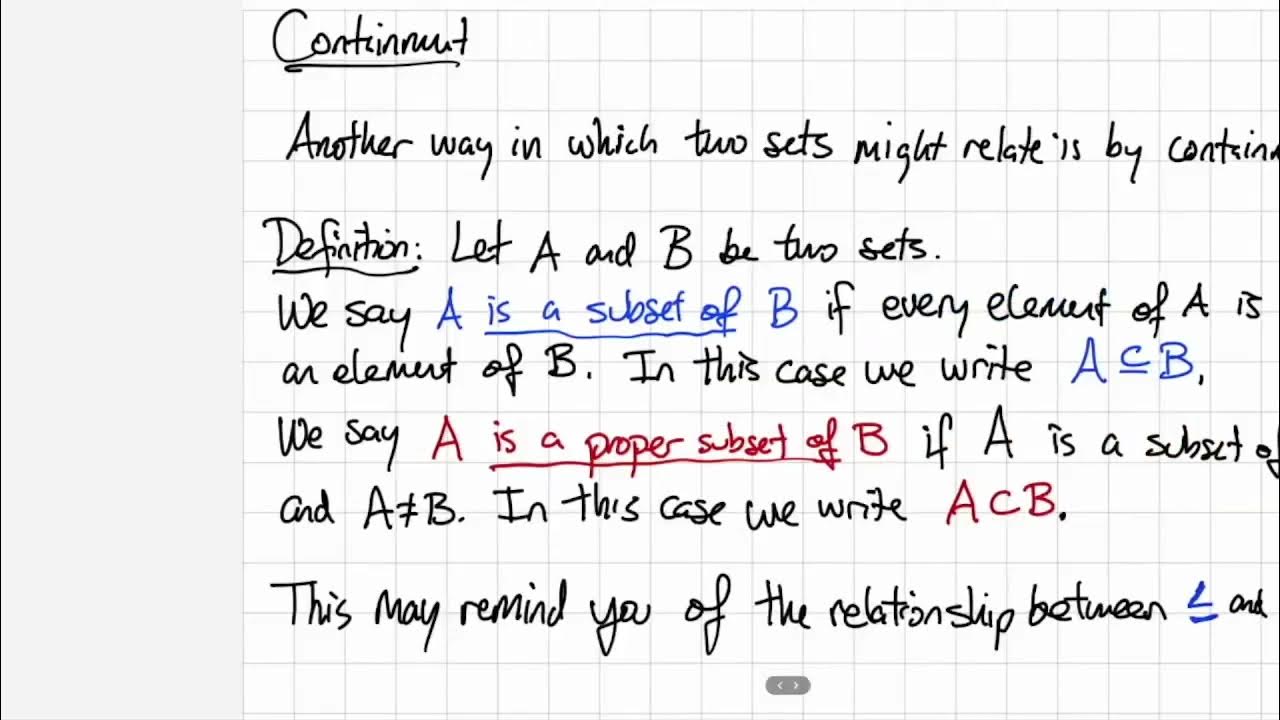 Containment
Another way in which two sets might relate is by contain
Definition: Let A and B be two sets.
We say A is a subset of B if every element of A is
an element of B. In this case we write A ⊆ B.
We say A is a proper subset of B if A is a subset of
and A≠B. In this case we write A⊂B.
This may remind you of the relationship between ≤ and